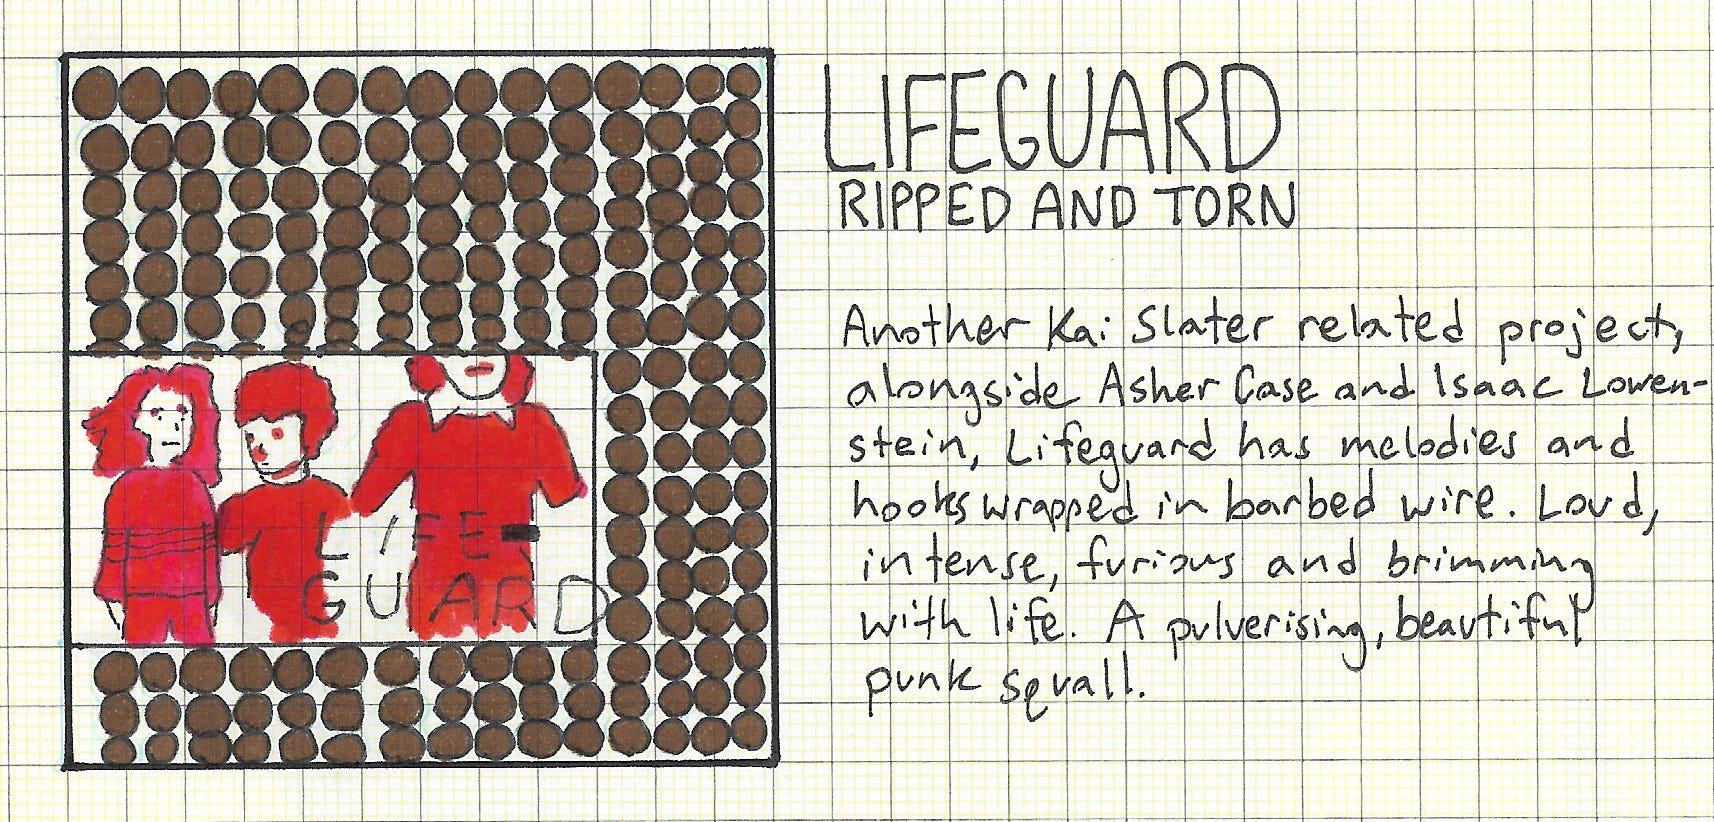 LIFEGUARD
RIPPED AND TORN
Another Kai Slater related project,
alongside Asher Case and Isaac Lowen-
stein, Lifeguard has melodies and
hooks wrapped in barbed wire. Loud,
intense, furious and brimming
with life. A pulverising, beautiful
punk squall.
LIFE-
GUARD